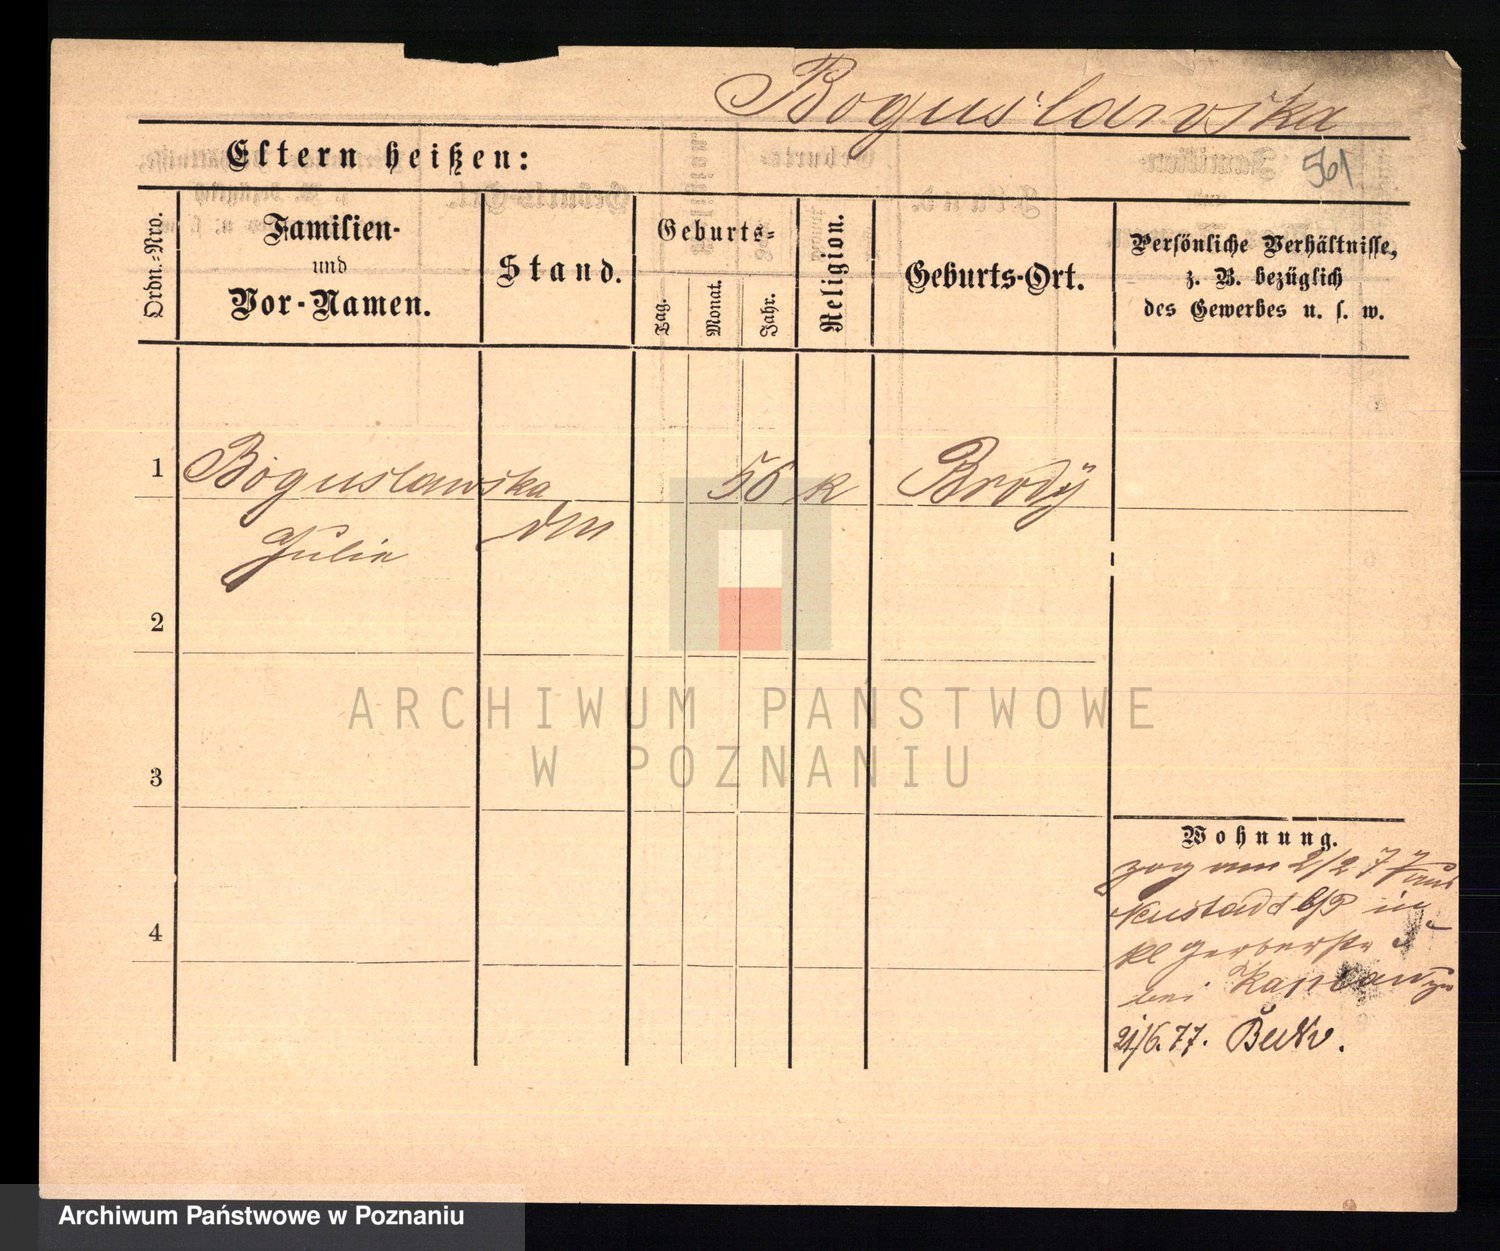 Boguslawska
561
Eltern heißen:
Ordn.-Nro.
Familien-
und
Vor-Namen.
Stand.
Geburts-
Tag.
Monat.
Jahr.
Religion.
Geburts-Ort.
Persönliche Verhältnisse,
z. B. bezüglich
des Gewerbes u. s. w.
1
Boguslawska
Julie
dm
56
k
Brody
2
3
4
Wohnung.
zog am 2/2 77 aus
Neustadt b/P in
kl Gerberstr
bei
21/6. 77.
ARCHIWUM PAŃSTWOWE
W POZNANIU
Archiwum Państwowe w Poznaniu